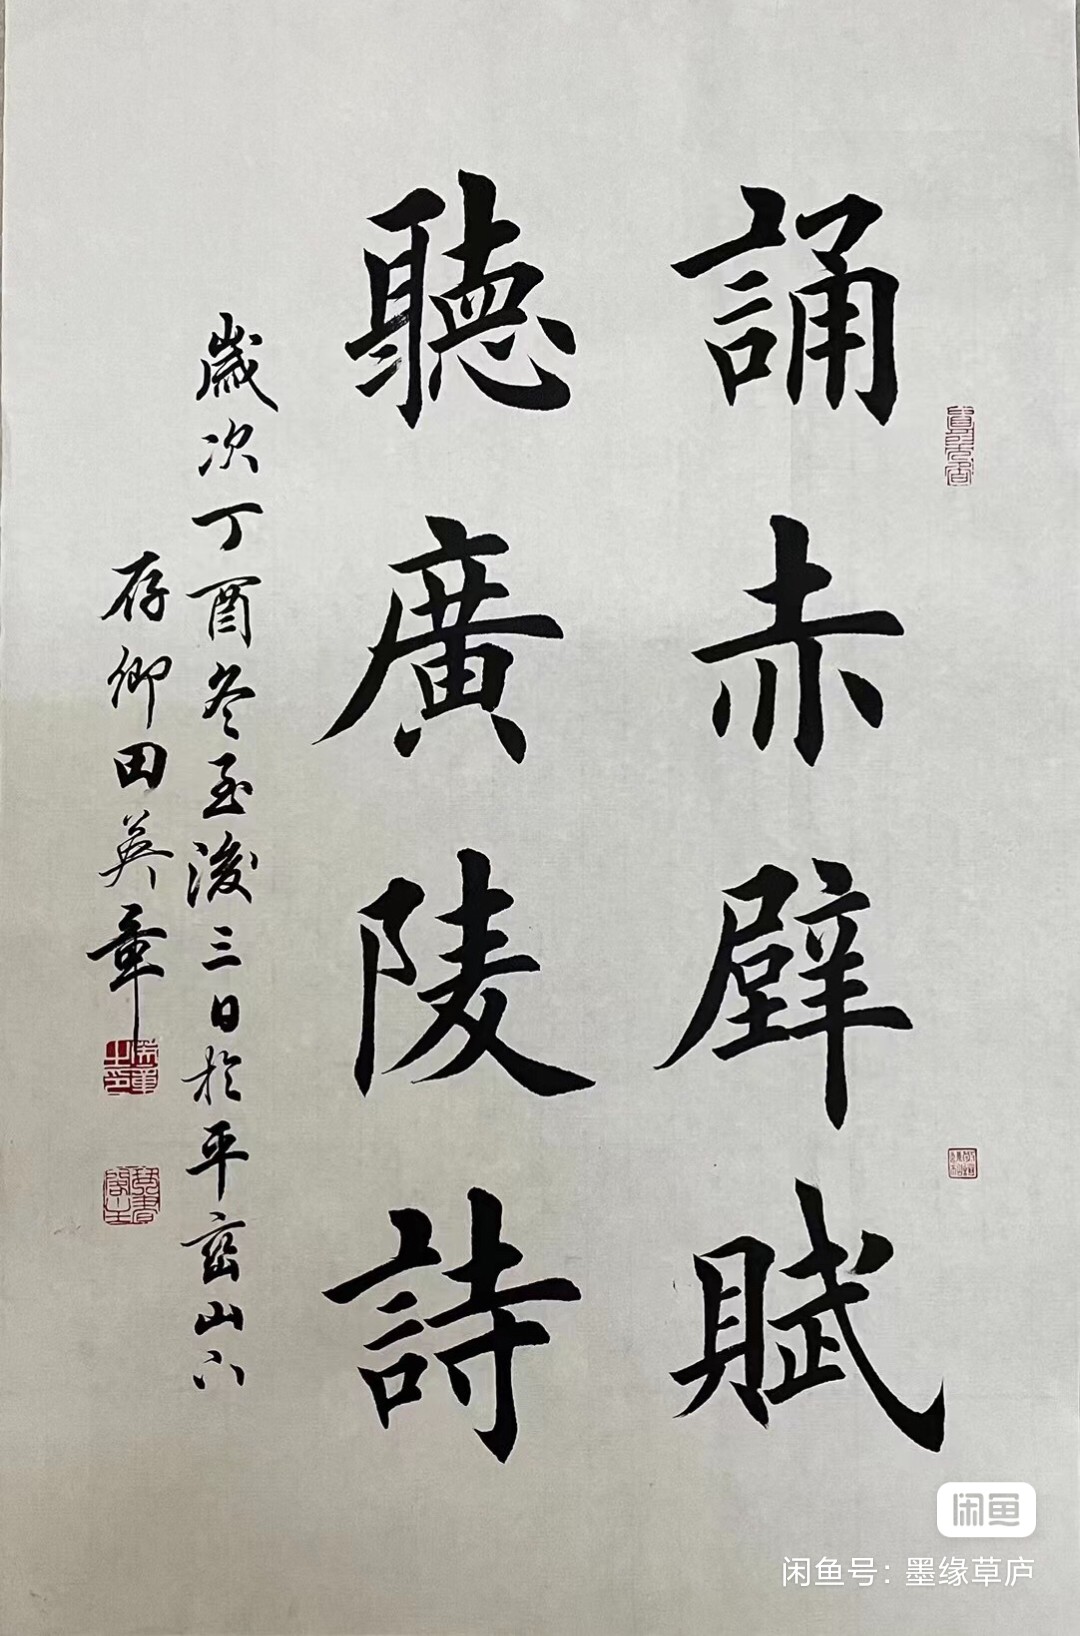 誦赤壁賦
聽廣陵詩
歲次丁酉冬至後三日於平巒山下
存卿田英章
闲鱼
闲鱼号：墨缘草庐